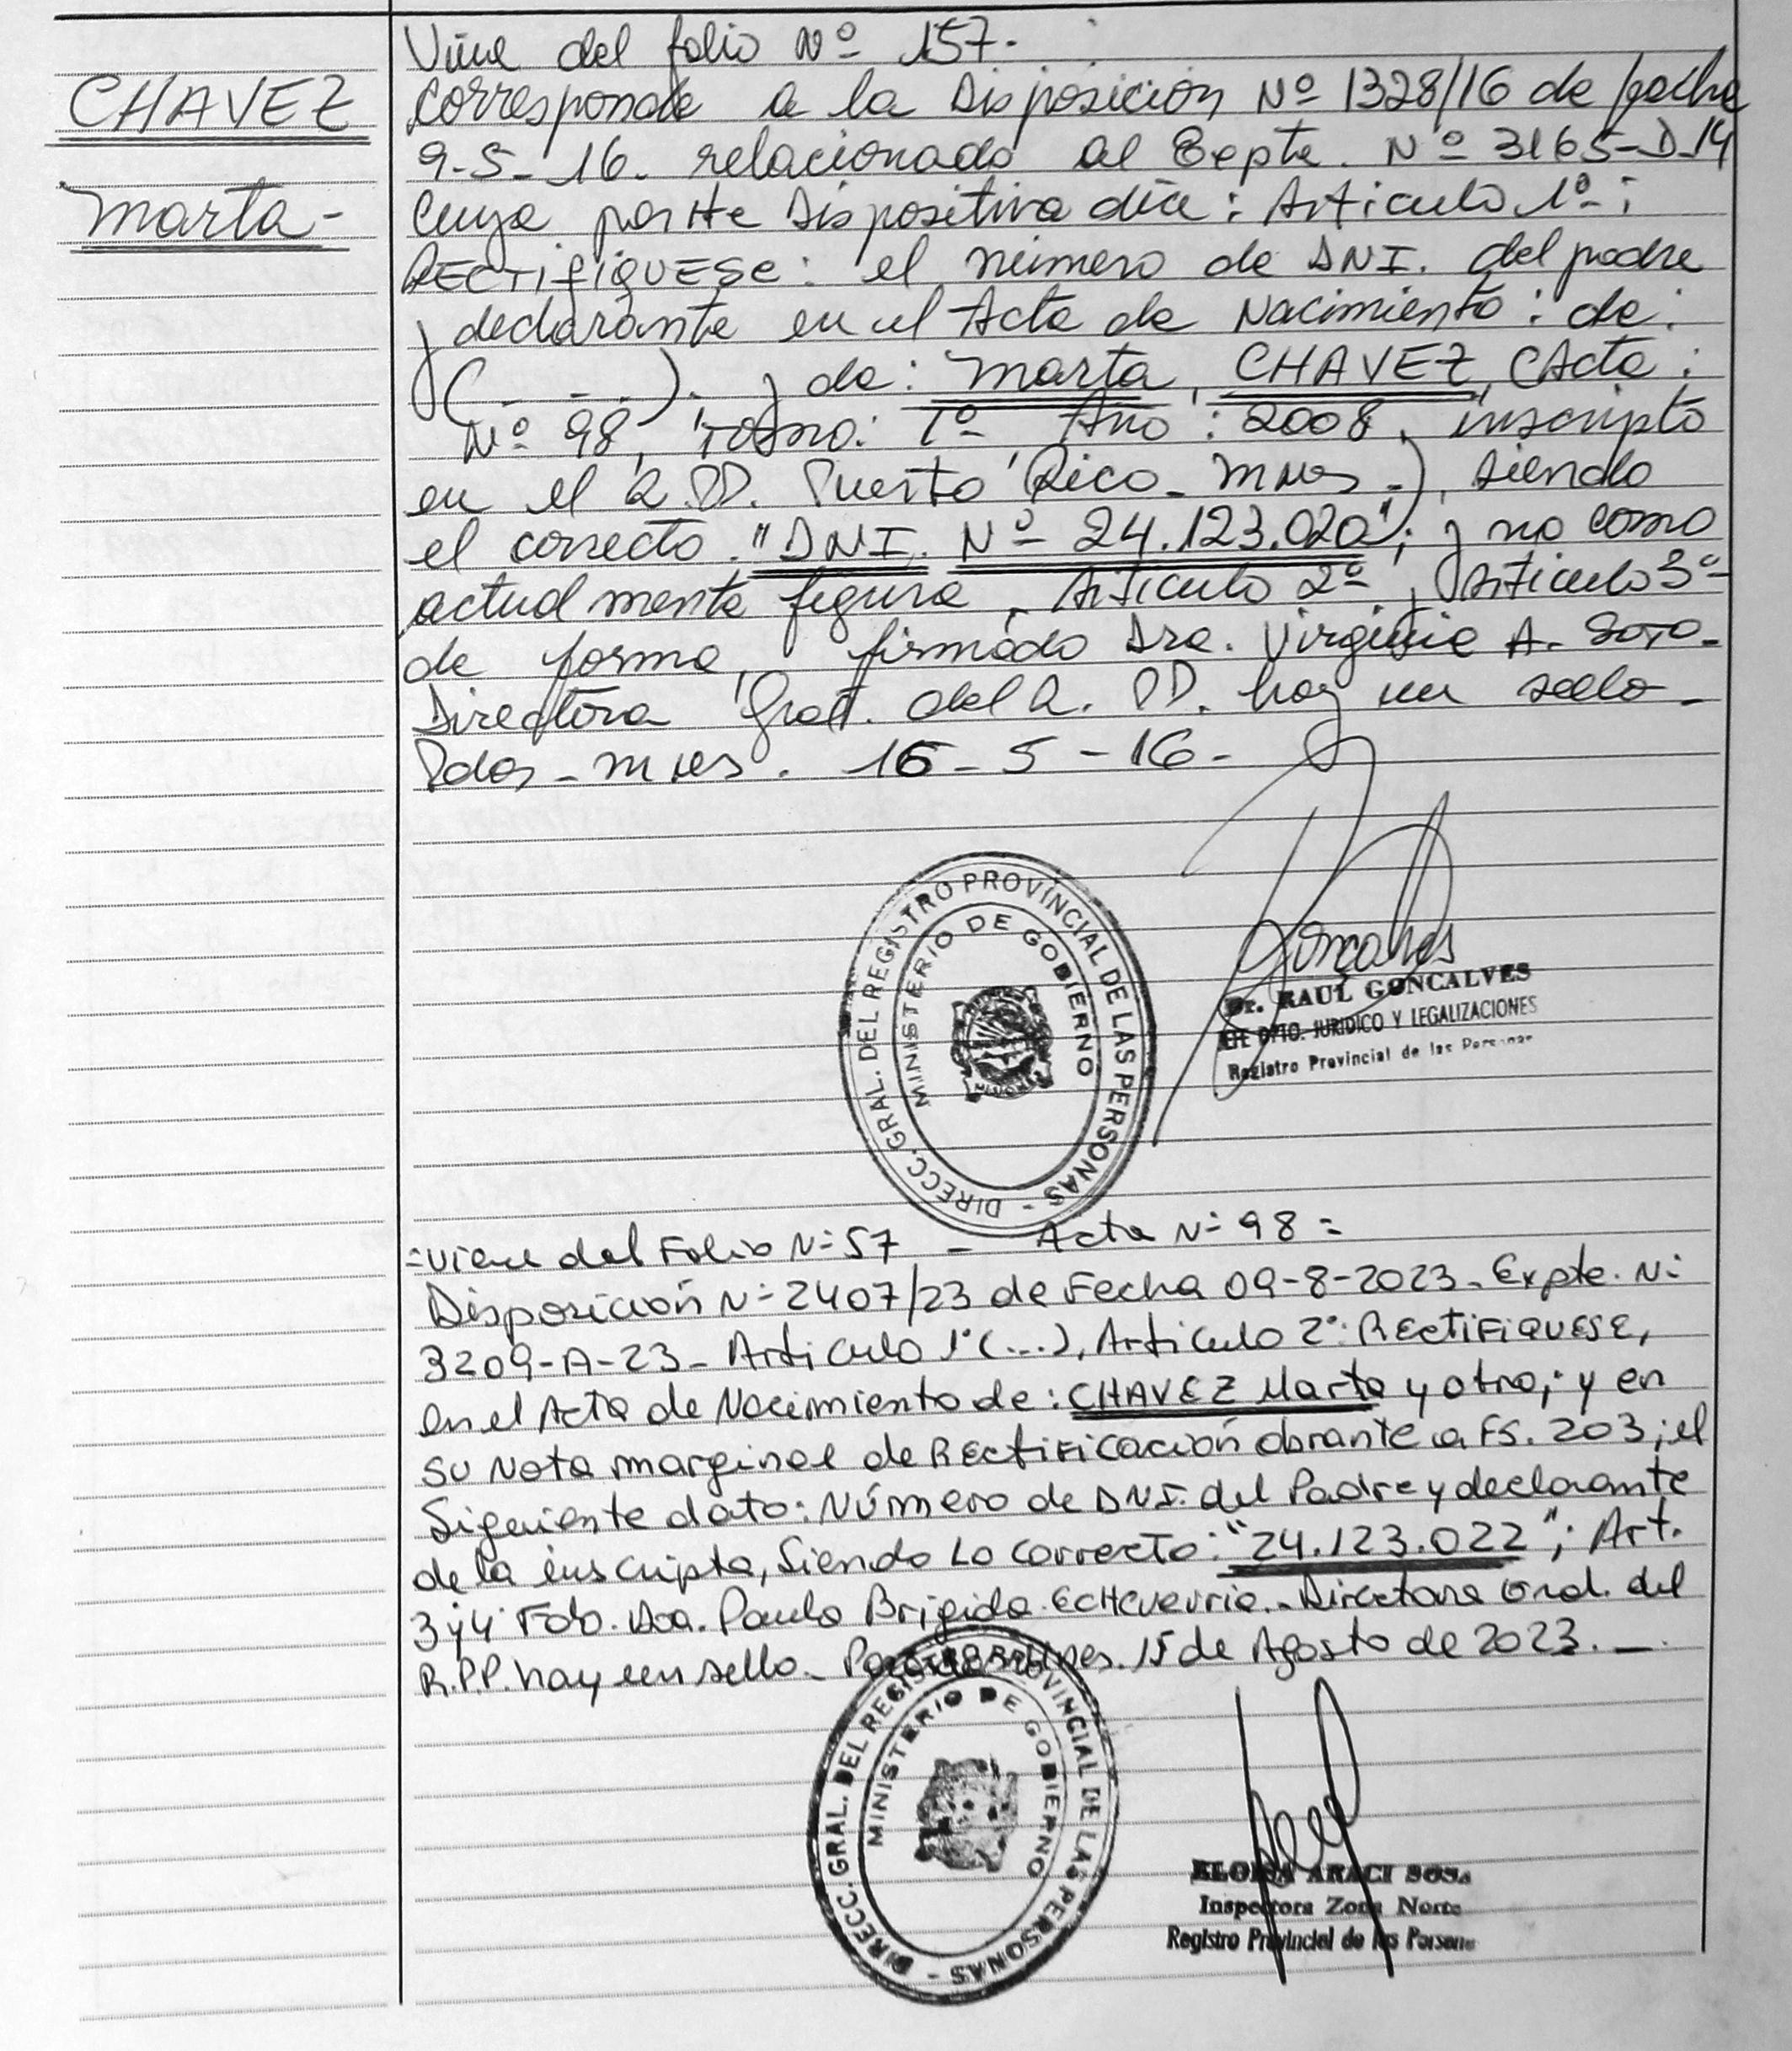 CHAVEZ
Marta-
Viene del folio Nº 157.
Corresponde a la Disposición Nº 1328/16 de fecha
9-5-16. relacionado al Expte. Nº 3165-D-14
Cuya parte Dispositiva dice: Artículo 1º:
RECTIFIQUESE: el número de DNI. del padre
y declarante en el Acta de Nacimiento: de:
(- - -). y de: Marta, CHAVEZ, (Acta:
Nº 98, Tomo: 1º Año: 2008, inscripto
en el R.PP. Puerto Rico - Mnes.), siendo
el correcto "DNI. Nº 24.123.020"; y no como
actualmente figura. Artículo 2º y Artículo 3º
de forma, firmado Dra. Virginia A. Soto-
Directora Gral. del R. PP. hay un sello-
Pdas-Mnes. 16-5-16-
DIRECC. GRAL. DEL REGISTRO PROVINCIAL DE LAS PERSONAS -
MINISTERIO DE GOBIERNO
MISIONES
Goncalves
Dr. RAUL GONCALVES
JEFE DPTO. JURIDICO Y LEGALIZACIONES
Registro Provincial de las Personas
=Viene del Folio Nº 57 - Acta Nº 98=
Disposición Nº 2407/23 de Fecha 09-8-2023. Expte. Nº
3209-A-23- Artículo 1º(...), Artículo 2º: RECTIFIQUESE,
en el Acta de Nacimiento de: CHAVEZ Marta y otro; y en
su Nota marginal de Rectificación obrante a FS. 203; el
Siguiente dato: Número de DNI. del Padre y declarante
de la inscripta, Siendo Lo Correcto: "24.123.022"; Art.
3 y 4º Fdo. Dra. Paula Brigida Echeverria.- Directora Gral. del
R.P.P. hay un sello- Posadas Mnes. 15 de Agosto de 2023.-
DIRECC. GRAL. DEL REGISTRO PROVINCIAL DE LAS PERSONAS -
MINISTERIO DE GOBIERNO
ELOISA ARACI SOSA
Inspectora Zona Norte
Registro Provincial de las Persona